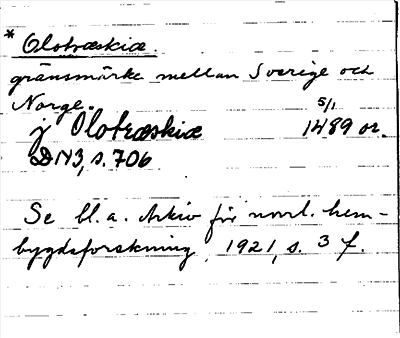 * Olotræskiæ.
gränsmärke mellan Sverige och
Norge.
5/1
j Olotræskiæ 1489 or.
DN3, s. 706
Se bl. a. Arkiv för norrl. hem-
bygdsforskning, 1921, s. 3 f.